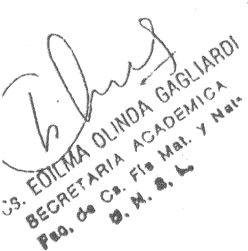 EDILMA OLINDA GAGLIARDI
SECRETARIA ACADEMICA
Fac. de Cs. Fís Mat. y Nat.
U. N. S. L.